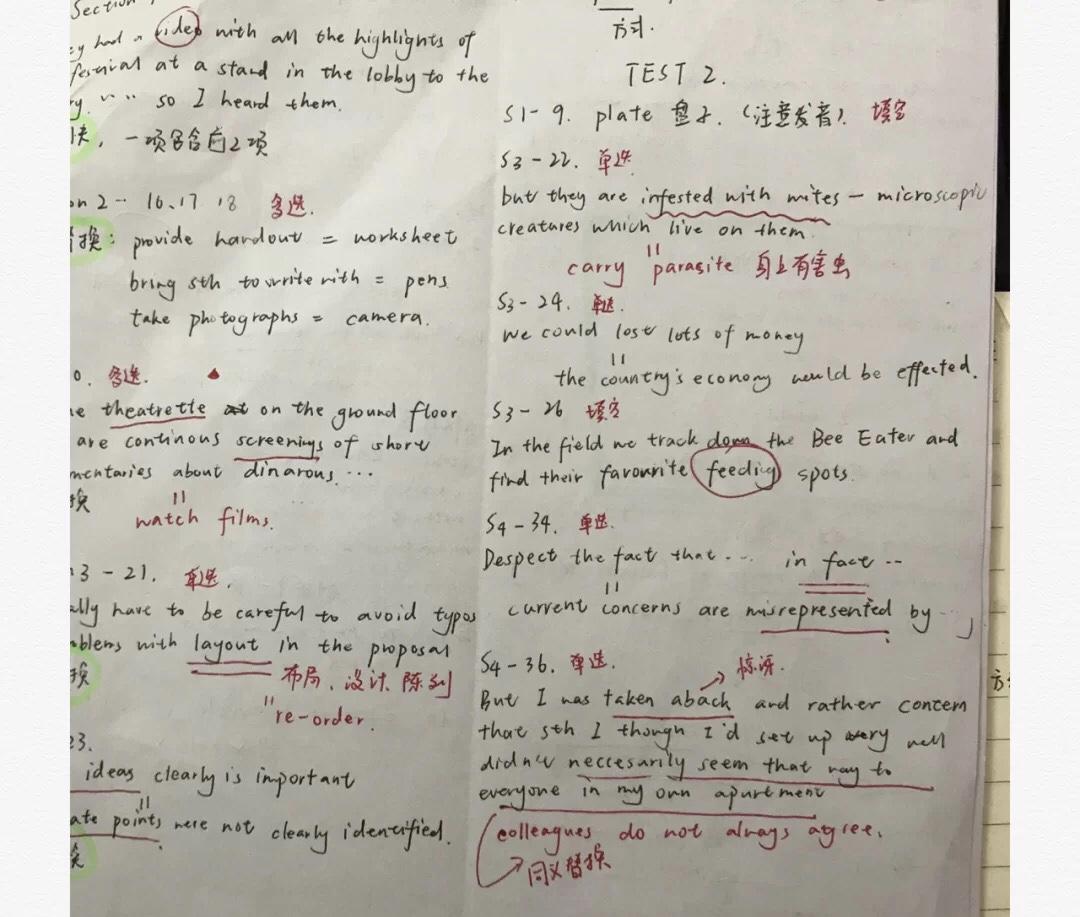 Section
ey had a video with all the highlights of
festival at a stand in the lobby to the
ry. " " so I heard them.
快, 一项含含前2项
on 2 -- 16、17 18 多选.
替换: provide handout = worksheet
bring sth to write with = pens
take photographs = camera.
0. 多选.
he theatrette at on the ground floor
are continous screenings of short
mentaries about dinarous...
换
||
watch films.
3-21. 单选.
ally have to be careful to avoid typos
oblems with layout in the proposal
换 布局、设计、陈列
|| re-order.
23.
ideas clearly is important
||
ate points were not clearly identified.
方式.
TEST 2.
S1-9. plate 盘子. (注意发音). 填空
S3-22. 单选
but they are infested with mites — microscopic
creatures which live on them.
||
carry parasite 身上有害虫
S3-24. 单选.
We could lost lots of money
||
the country's economy would be effected.
S3-26 填空
In the field we track down the Bee Eater and
find their favourite feedig spots.
S4-34. 单选.
Despect the fact that... in fact --
||
current concerns are misrepresented by --
S4-36. 单选. 惊讶.
But I was taken aback and rather concern
that sth I though I'd set up very well
didn't neccesarily seem that way to
everyone in my own apartment
colleagues do not always agree.
同义替换
方